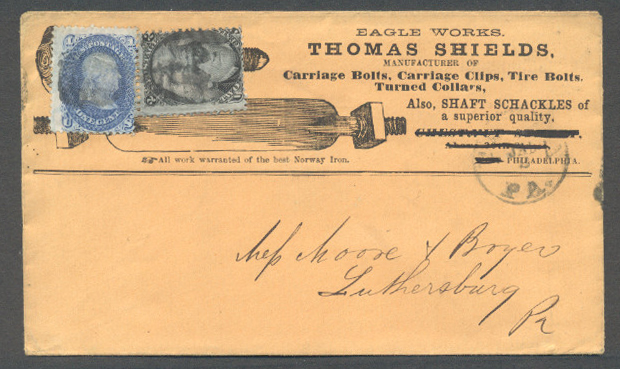 EAGLE WORKS.
THOMAS SHIELDS,
MANUFACTURER OF
Carriage Bolts, Carriage Clips, Tire Bolts.
Turned Collars,
Also, SHAFT SCHACKLES of
a superior quality,
CHESTNUT
PHILADELPHIA.
All work warranted of the best Norway Iron.
PA.
ONE CENT
Mess Moore & Boyer
Luthersburg
Pa